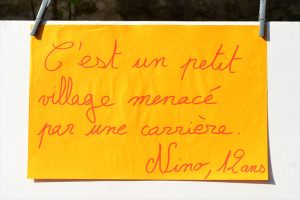 C'est un petit
village menacé
par une carrière.
Nino, 12 ans